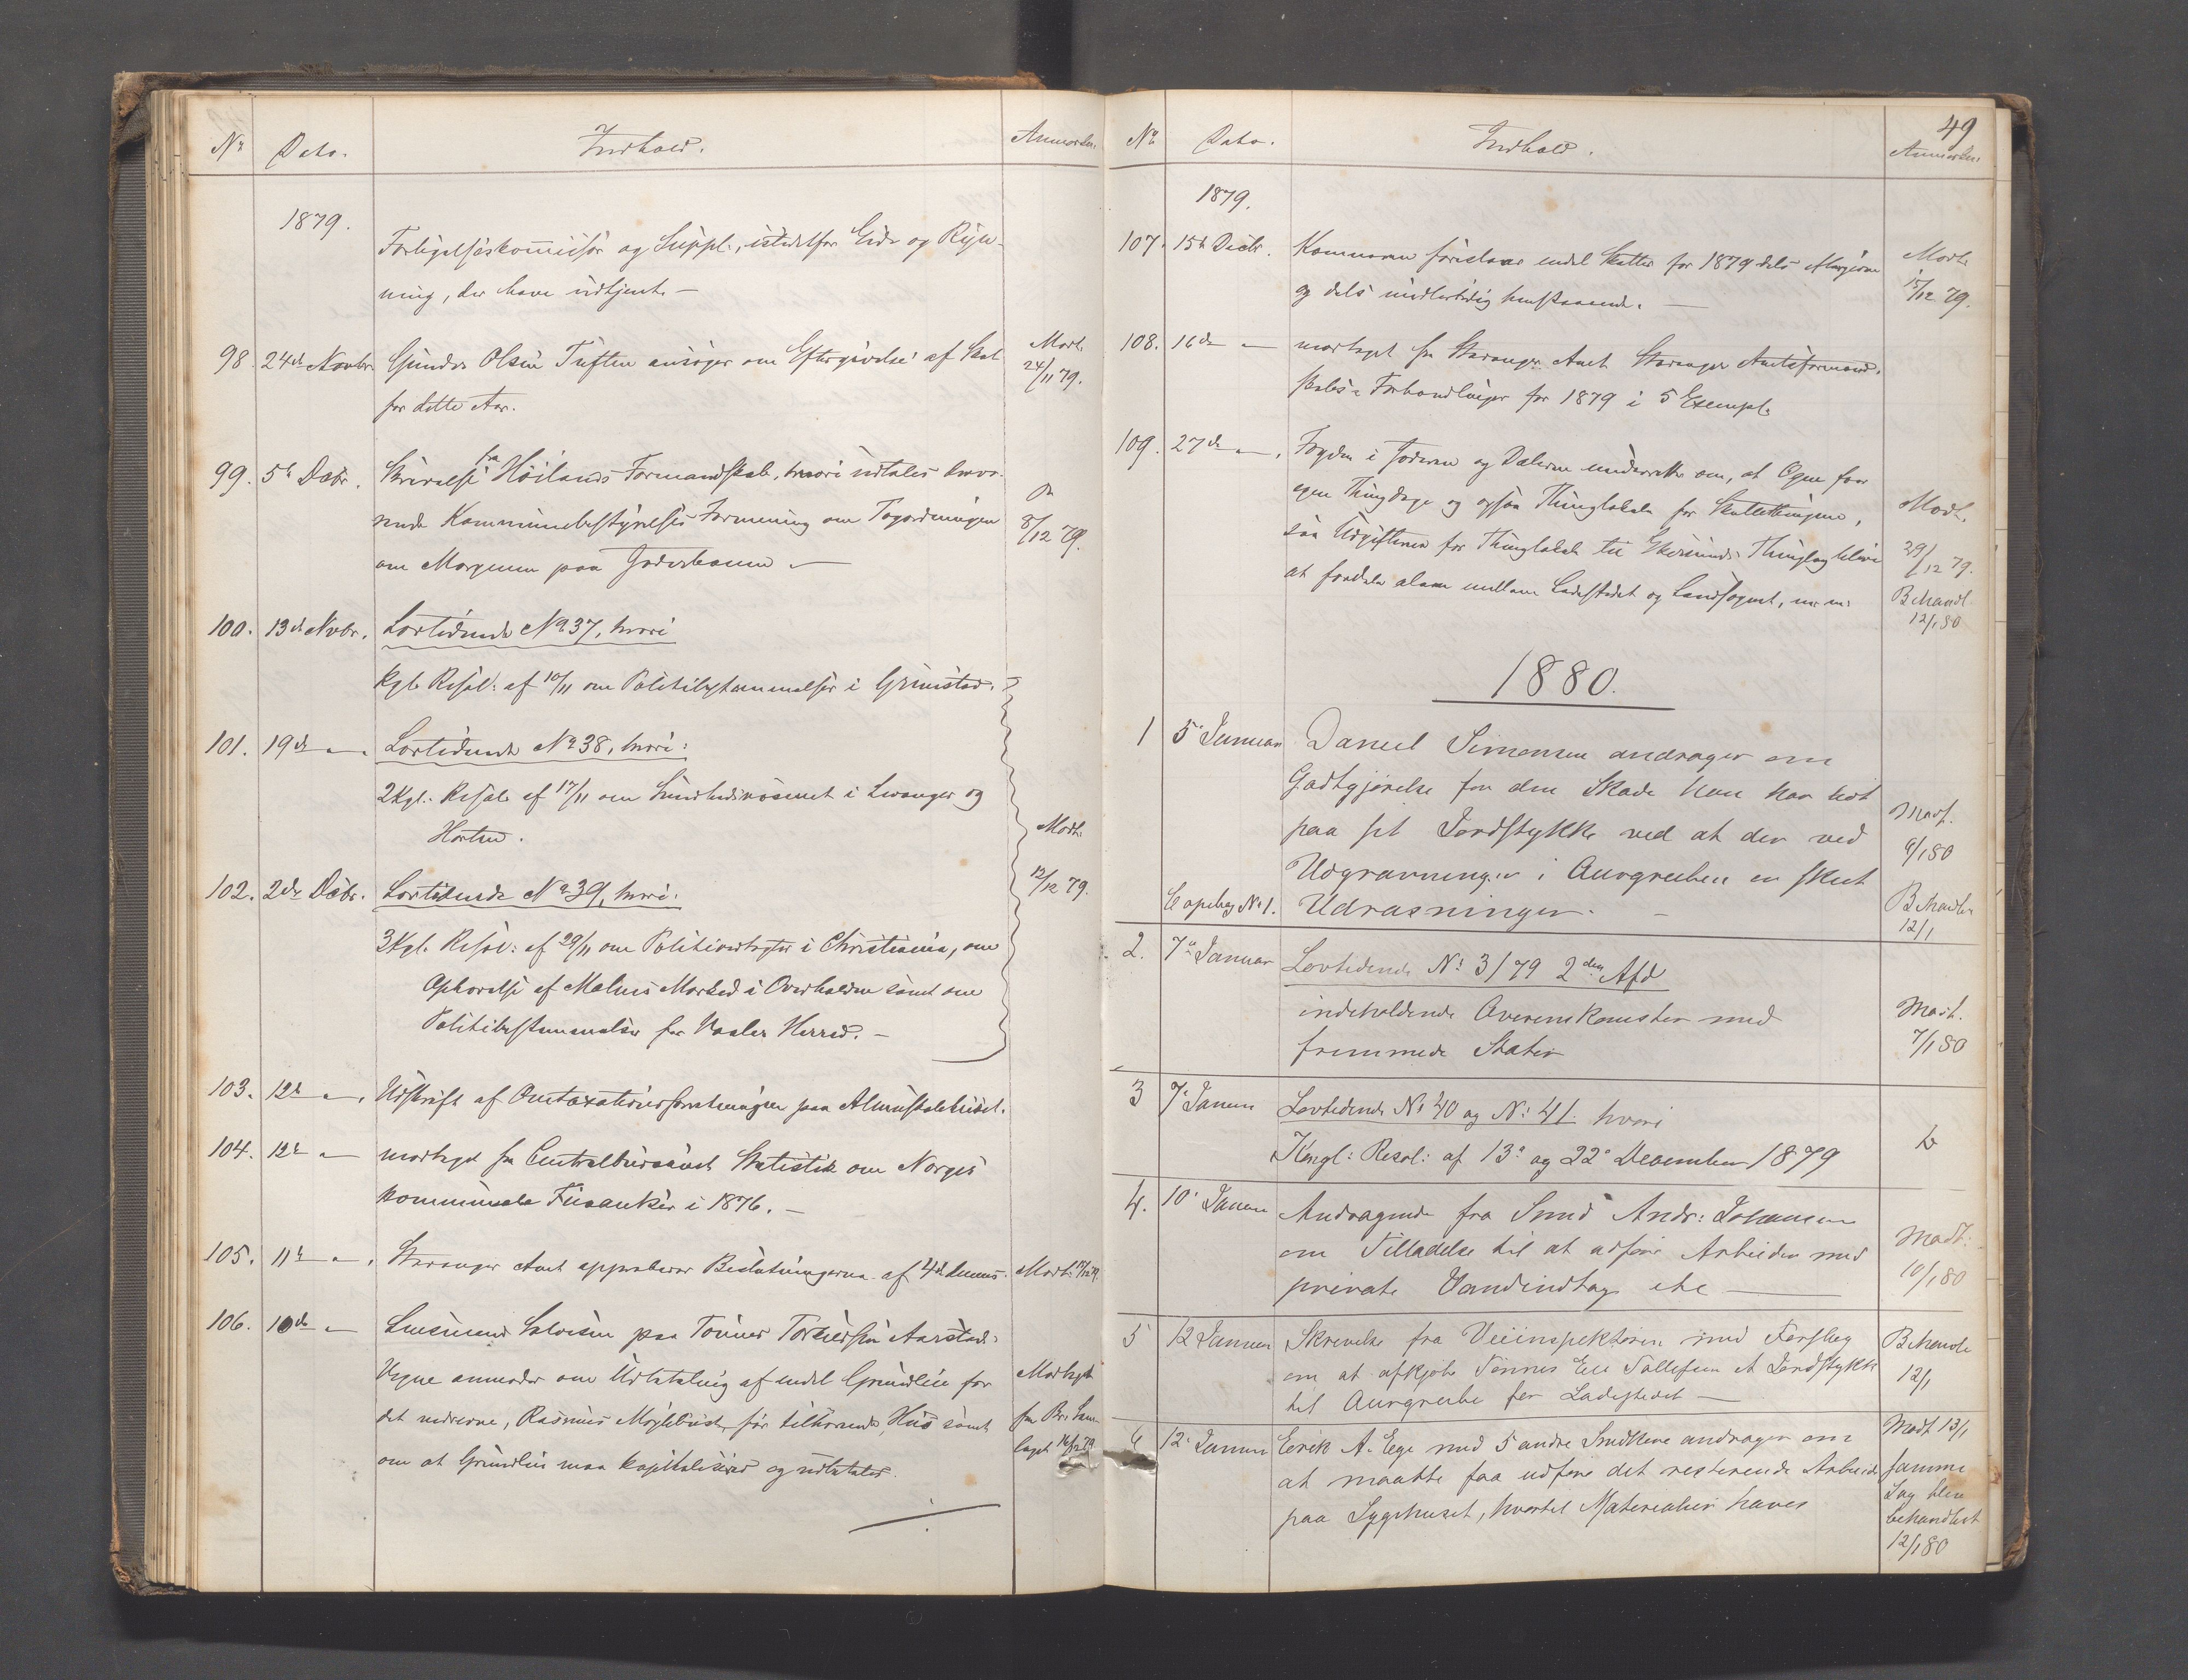 No Dato. Indhold. Anmærkn.
1879.
Forligelseskommissær og Suppl., istedetfor Eide og Ryn-
ning, der have udtjent. —
98. 24de Novbr. Gunder Olsen Tuften ansøger om Eftergivelse af Skat Modt.
for dette Aar. 24/11 79.
99. 5te Decbr. Skrivelse fra Høilands Formandskab, hvori udtales herv.
rende Kommunebestyrelses Formening om Togordningen
om Morgenen paa Jæderbanen — 8/12 79.
100. 13de Novbr. Lovtidende No 37, hvori
Kgl. Resol: af 10/11 om Politibestemmelser i Grimstad.
101. 19de — Lovtidende No 38, hvori:
2 Kgl. Resol: af 17/11 om Sundhedsvæsenet i Levanger og
Horten. Modt.
12/12 79.
102. 2de Decbr. Lovtidende No 39, hvori:
3 Kgl. Resol: af 29/11 om Politivedtægter i Christiania, om
Ophævelse af Melnes Marked i Overhalden samt om
Politibestemmelser for Vaaler Herred. —
103. 12te — Udskrift af Omtaxationsforretningen paa Almueskolehuset.
104. 12te — modtaget fra Centralbureauet Statistik om Norges
kommunale Finantser i 1876. —
105. 11te — Stavanger Amt approberer Beslutningerne af 4de dennes. Modt.
106. 10de — Salvesen paa Tønnes Aarstads
Vegne anmoder om Udbetaling af endel Grundleie for Modtaget
det nedrevne, Rasmus før tilhørende, Hus samt fra
om at Grundleie maa kapitaliseres og udbetales. laget 16/12 79
49
No Dato. Indhold. Anmærkn.
1879.
107. 15de Decbr. Kemneren foreslaar endel Skatter for 1879 dels Modt.
og dels midlertidig henstaaende. — 15/12 79.
108. 16de — modtaget fra Stavanger Amt Stavanger Amtsformand-
skabs Forhandlinger for 1879 i 5 Exempl.
109. 27de — Fogden i Jæderen og Dalerne underretter om, at Ogne faar
egen Thingdage og ogsaa Thinglokale for Skattethingene, Modt.
saa Udgifterne for Thinglokale til Ekersunds Thinglag bliver 29/12 79.
at fordele alene mellem Ladestedet og Landsognet, m.m. Behandl.
12/1 80
1880.
1 5' Januar Daniel Simonsen andrager om
Godtgjørelse for den Skade han har lidt
paa sit Jordstykke ved at der ved Modt.
Udgravningen i Aurgruben er skeet 6/1 80
Copibog No 1. Udrasninger. — Behandler 12/1
2. 7de Januar Lovtidende No 3/79 2den Afd
indeholdende Overenskomster med Modt.
fremmede Stater 7/1 80
3 7' Januar Lovtidende No 40 og No 41. hvori
Kongl: Resol: af 13' og 22' December 1879
4. 10' Januar Andragende fra Smed Andr: Johansen
om Tilladelse til at udføre Arbeider med Modt.
private Vandindtag etc — 10/1 80
5 12 Januar Skrivelse fra Veiinspektøren med Forslag Behandl.
om at afkjøbe Tønnes Elle Tollefsen et Jordstykke 12/1
til Aurgrube for Ladestedet —
6 12' Januar Eerik A. Eege med 5 andre Snedkere andrager om Modt 13/1
at maatte faa udføre det resterende Arbeide samme
paa Sygehuset, hvortil Materialier haves Sag blev
behandlet
12/1 80